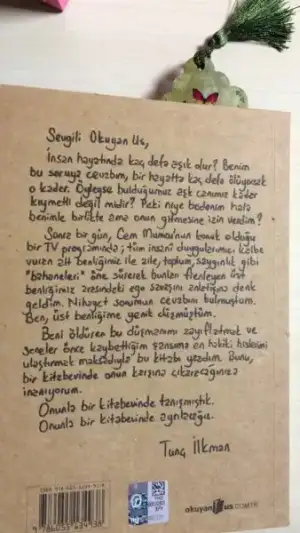 Sevgili Okuyan Us,
İnsan hayatında kaç defa aşık olur? Benim
bu soruya cevabım, bir hayatta kaç defa ölüyorsak
o kadar. Öyleyse bulduğumuz aşk canımız kadar
kıymetli değil midir? Peki niye bedenim hala
benimle birlikte ama onun gitmesine izin verdim?
Sonra bir gün, Cem Mumcu'nun konuk olduğu
bir TV programında; tüm insani duygularımızı kalbe
vuran alt benliğimiz ile aile, toplum, saygınlık gibi
"bahaneleri" öne sürerek bunları frenleyen üst
benliğimiz arasındaki ego savaşını anlatışına denk
geldim. Nihayet sorumun cevabını bulmuştum.
Ben, üst benliğime yenik düşmüştüm.
Beni öldüren bu düşmanımı zayıflatmak ve
seneler önce kaybettiğim şansıma en hakiki hislerimi
ulaştırmak maksadıyla bu kitabı yazdım. Bunu,
bir kitabevinde onun karşına çıkaracağınıza
inanıyorum.
Onunla bir kitabevinde tanışmıştık.
Onunla bir kitabevinde ayrılacağız.
Tunç İlkman
okuyanus.com.tr